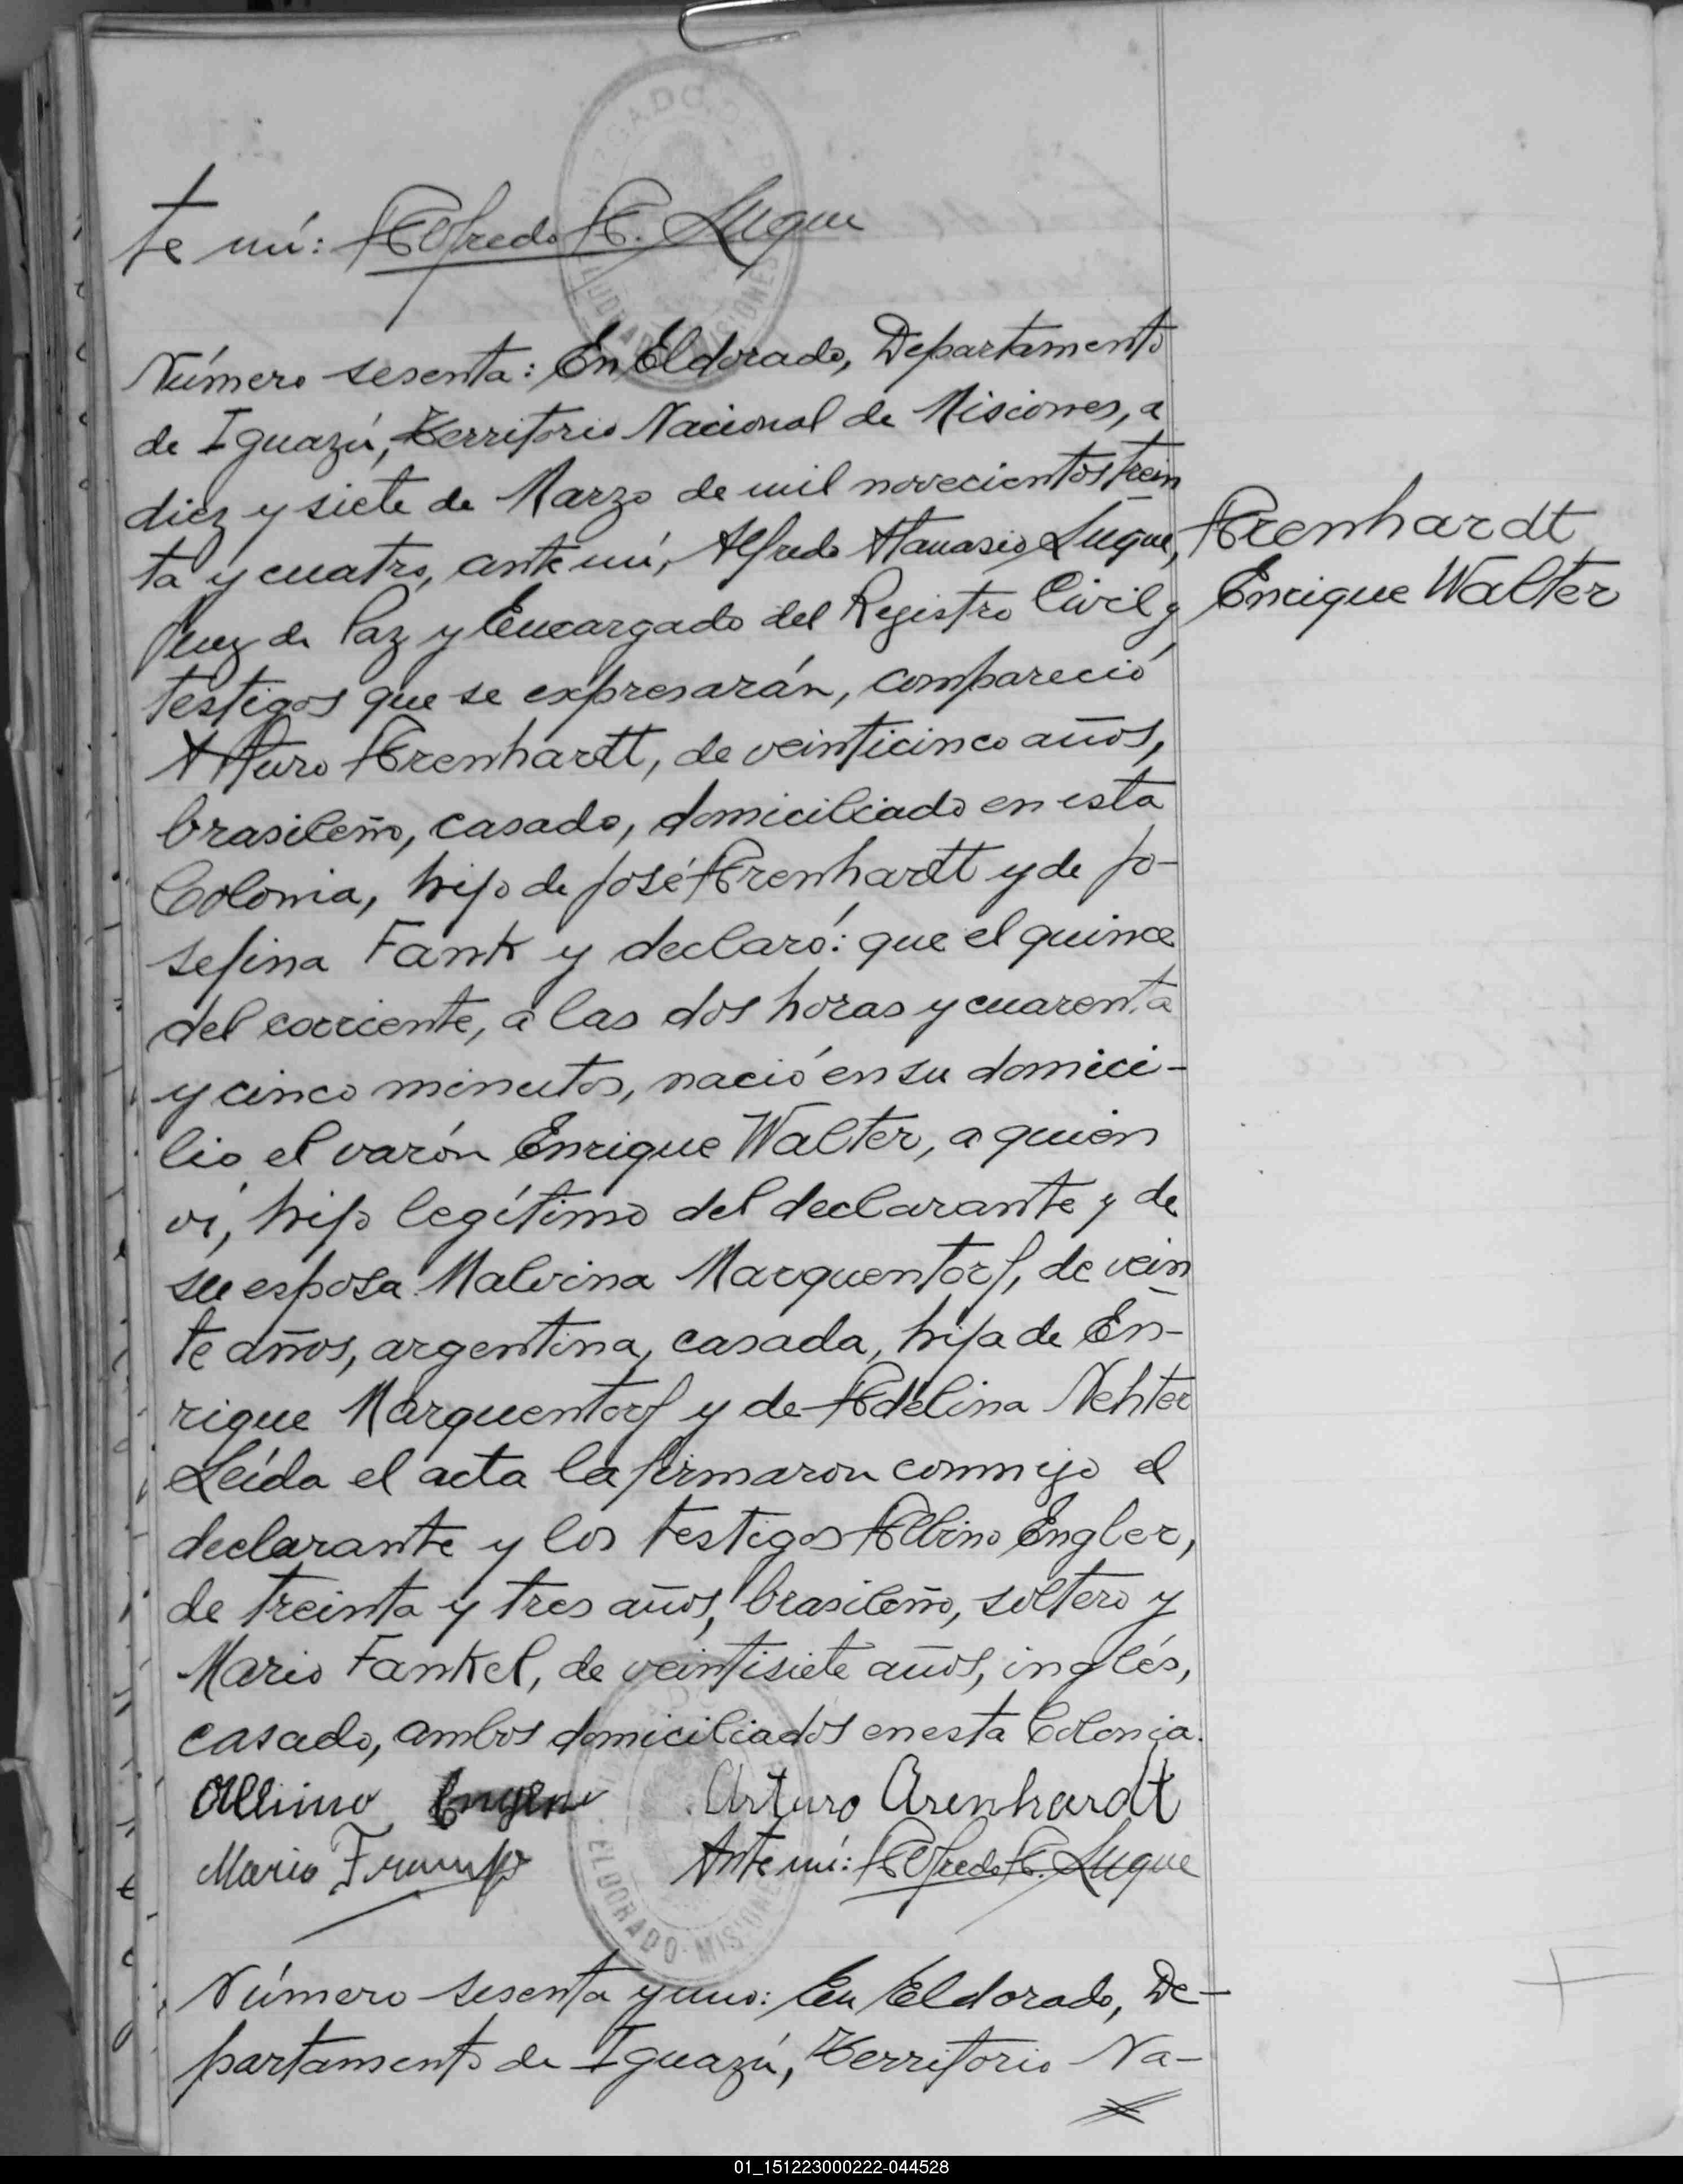 te mí: Alfredo A. Luque
Número sesenta: En Eldorado, Departamento
de Iguazú, Territorio Nacional de Misiones, a
diez y siete de Marzo de mil novecientos trein
ta y cuatro, ante mí, Alfredo Atanasio Luque,
Juez de Paz y Encargado del Registro Civil y
testigos que se expresarán, compareció
Arturo Arenhardt, de veinticinco años,
brasileño, casado, domiciliado en esta
Colonia, hijo de José Arenhardt y de Jo-
sefina Fank y declaró: que el quince
del corriente, a las dos horas y cuarenta
y cinco minutos, nació en su domici-
lio el varón Enrique Walter, a quien
vi, hijo legítimo del declarante y de
su esposa Malvina Marquentorf, de vein
te años, argentina, casada, hija de En-
rique Marquentorf y de Adelina Nehter
Leída el acta la firmaron conmigo el
declarante y los testigos Albino Engler,
de treinta y tres años, brasileño, soltero y
Mario Fankel, de veintisiete años, inglés,
casado, ambos domiciliados en esta Colonia.
Arenhardt
Enrique Walter
Albino Arturo Arenhardt
Mario Ante mí: Alfredo A. Luque
ELDORADO - MISIONES
Número sesenta y uno: En Eldorado, De-
partamento de Iguazú, Territorio Na-
01_151223000222-044528